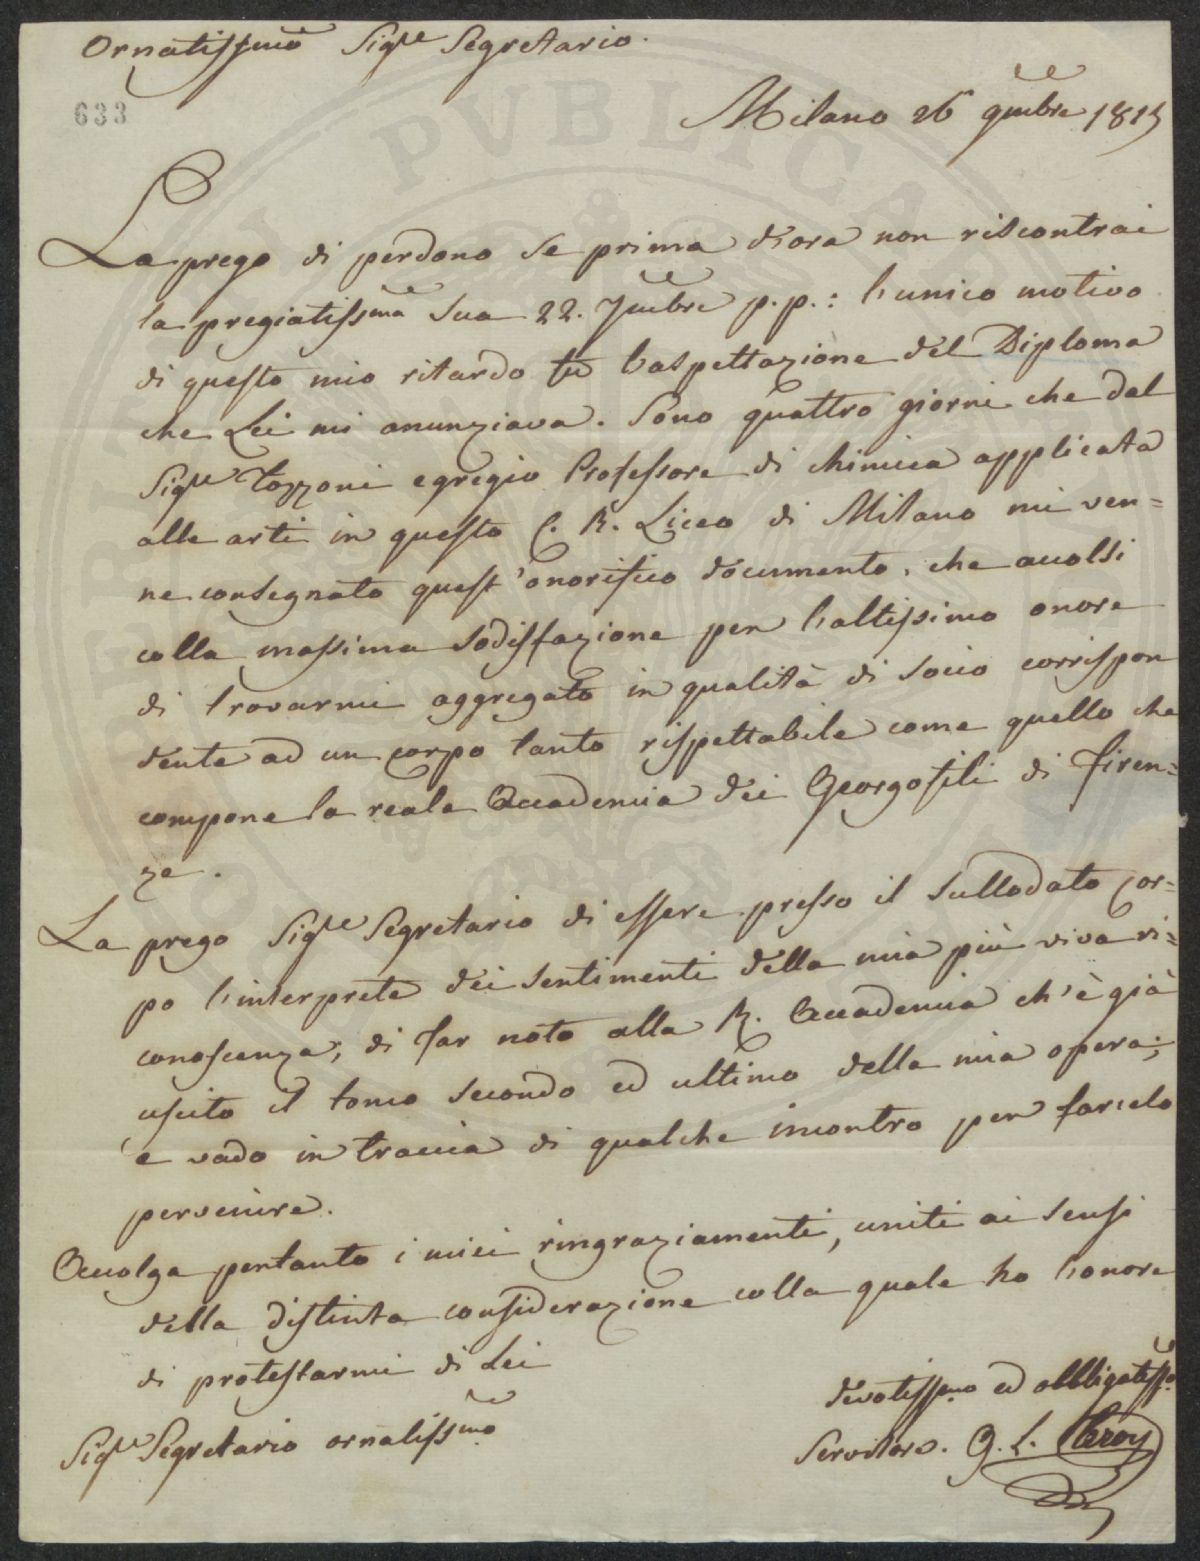 Ornatissimo Sigre Segretario.
633
Milano 26 9mbre 1815
La prego di perdono se prima d'ora non riscontrai
la pregiatissma sua 22. 7mbre p.p.: l'unico motivo
di questo mio ritardo fu l'aspettazione del Diploma
che Lei mi anunziava. Sono quattro giorni che dal
Sigre Tozzoni egregio Professore di chimica applicata
alle arti in questo C. R. Liceo di Milano mi ven=
ne consegnato quest'onorifico documento, che accolsi
colla massima sodisfazione per l'altissimo onore
di trovarmi aggregato in qualità di socio corrispon
dente ad un corpo tanto rispettabile come quello che
compone la reale Accademia dei Georgofili di Firen=
ze.
La prego Sigre Segretario di essere presso il sullodato Cor=
po l'interprete dei sentimenti della mia più viva ri=
conoscenza, di far noto alla R. Accademia ch'è già
uscito il tomo secondo ed ultimo della mia opera;
e vado in traccia di qualche incontro per farielo
pervenire.
Accolga pertanto i miei ringraziamenti, uniti ai sensi
della distinta considerazione colla quale ho l'onore
di protestarmi di Lei
Sigre Segretario ornatissmo
devotissmo ed obbligatisso
Servitore. G. L. Leroy